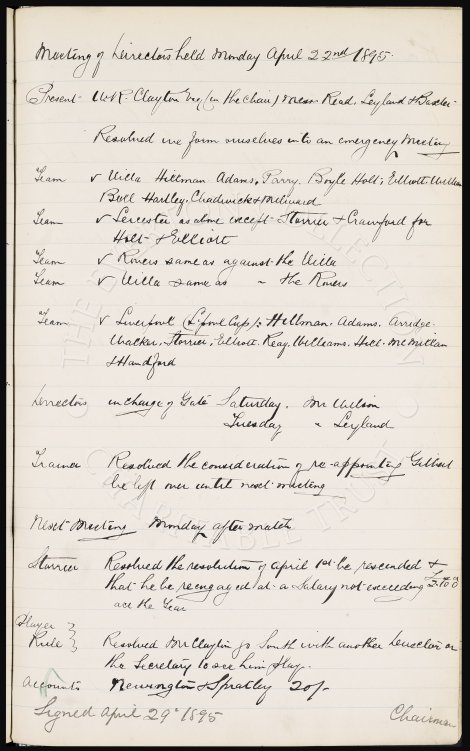 Meeting of Directors held Monday April 22nd 1895.
Present W.R. Clayton Esq (in the Chair) & Messrs Read, Leyland & Baxter.
Resolved we form ourselves into an emergency Meeting
Team v Villa Hillman. Adams. Parry. Boyle Holt. Elliott. Williams
Bell Hartley. Chadwick & Milward
Team v Leicester as above except Storrier & Crawford for
Holt & Elliott
Team v Rovers same as against the Villa
Team v Villa same as " the Rovers
Team v Liverpool (L'pool Cup): Hillman. Adams. Arridge.
Walker. Storrier. Elliott. Reay. Williams. Hill. McMillan
& Handford
Directors in charge of Gate Saturday. Mr Wilson
Tuesday " Leyland
Trainer Resolved the consideration of re-appointing Gilbert
be left over until next meeting
Next Meeting Monday after match
Storrier Resolved the resolution of April 1st be rescinded &
that he be reengaged at a Salary not exceeding £3.10.0
all the Year
Player }
Rule } Resolved Mr Clayton go South with another Director or
the Secretary to see him play.
Accounts Newington & Spratley 20/-
Signed April 29th 1895 Chairman
THE
COLLECTION
CHARITABLE TRUST